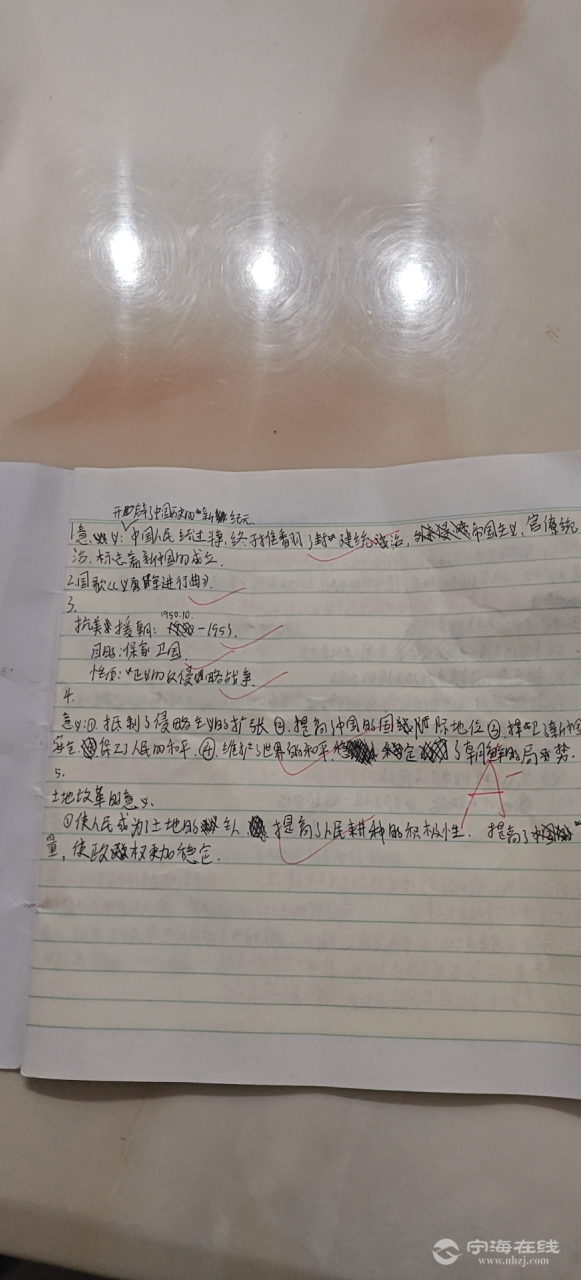 开启了中国历史的"新纪元
1.意义:中国人民经过 终于推翻了封建统治, 帝国主义,官僚统
治,标志着新中国的成立.
2.国歌《义勇军进行曲》.
3.
1950.10.
抗美援朝: -1953.
目的:保家卫国.
性质:正义的反侵略战争.
4.
意义:① 抵制了侵略主义的扩张 ②.提高了中国的国际地位 ③ 卫了新中国
安全 保卫了人民的和平. ④.维护了世界的和平. 稳定 了朝鲜的局势.
A-
5.
土地改革的意义.
①使人民成为了土地的主人 提高了人民耕种的积极性. 提高了
量,使政权更加稳定.
宁海在线
www.nhzj.com